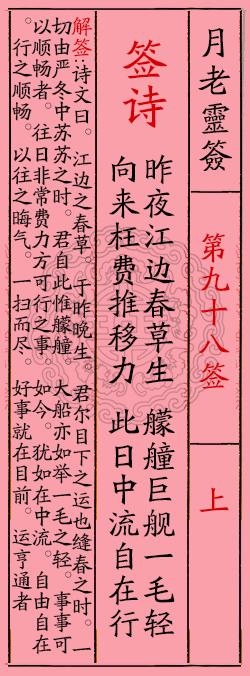 月老靈簽
第九十八签
上
签诗
昨夜江边春草生 艨艟巨舰一毛轻
向来枉费推移力 此日中流自在行
解签:诗文曰。 江边之春草。于昨晚生。 君尔目下之运也缝春之时。一
切由严冬中苏苏之时。君自此惟艨艟 大船亦如举一毛之轻。事事可
以顺畅者。 往日非常费力方可行之事。 如今。犹如在中流。自由自在
。行之顺畅。 以往之晦气。一扫而尽。 好事就在目前。运亨通者